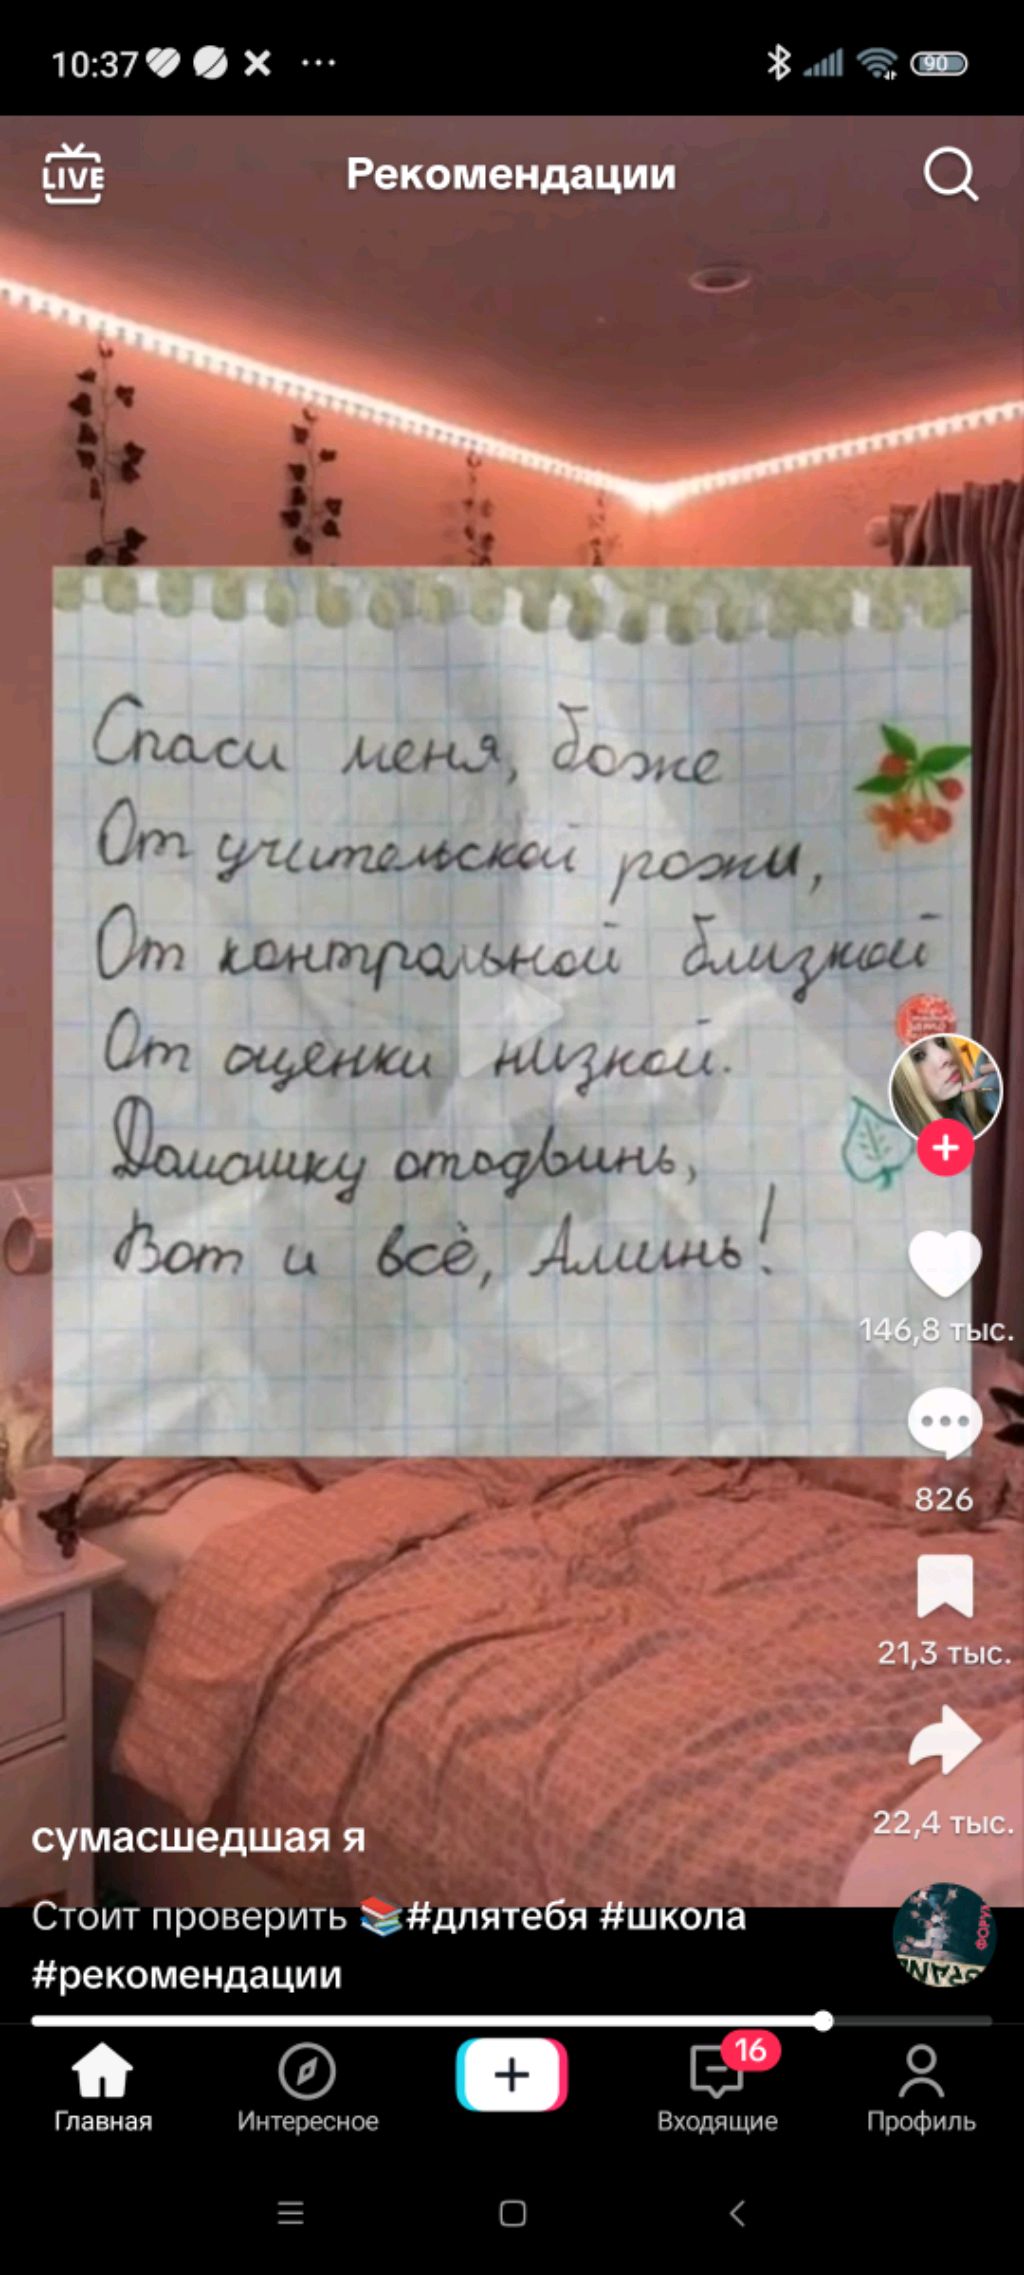 10:37
90
LIVE
Рекомендации
Спаси меня, боже
От учительской рожи,
От контрольной близкой
От оценки низкой.
Домашку отодвинь,
Вот и всё, Аминь!
146,8 тыс.
826
21,3 тыс.
22,4 тыс.
сумасшедшая я
Стоит проверить #длятебя #школа
#рекомендации
16
Главная
Интересное
Входящие
Профиль